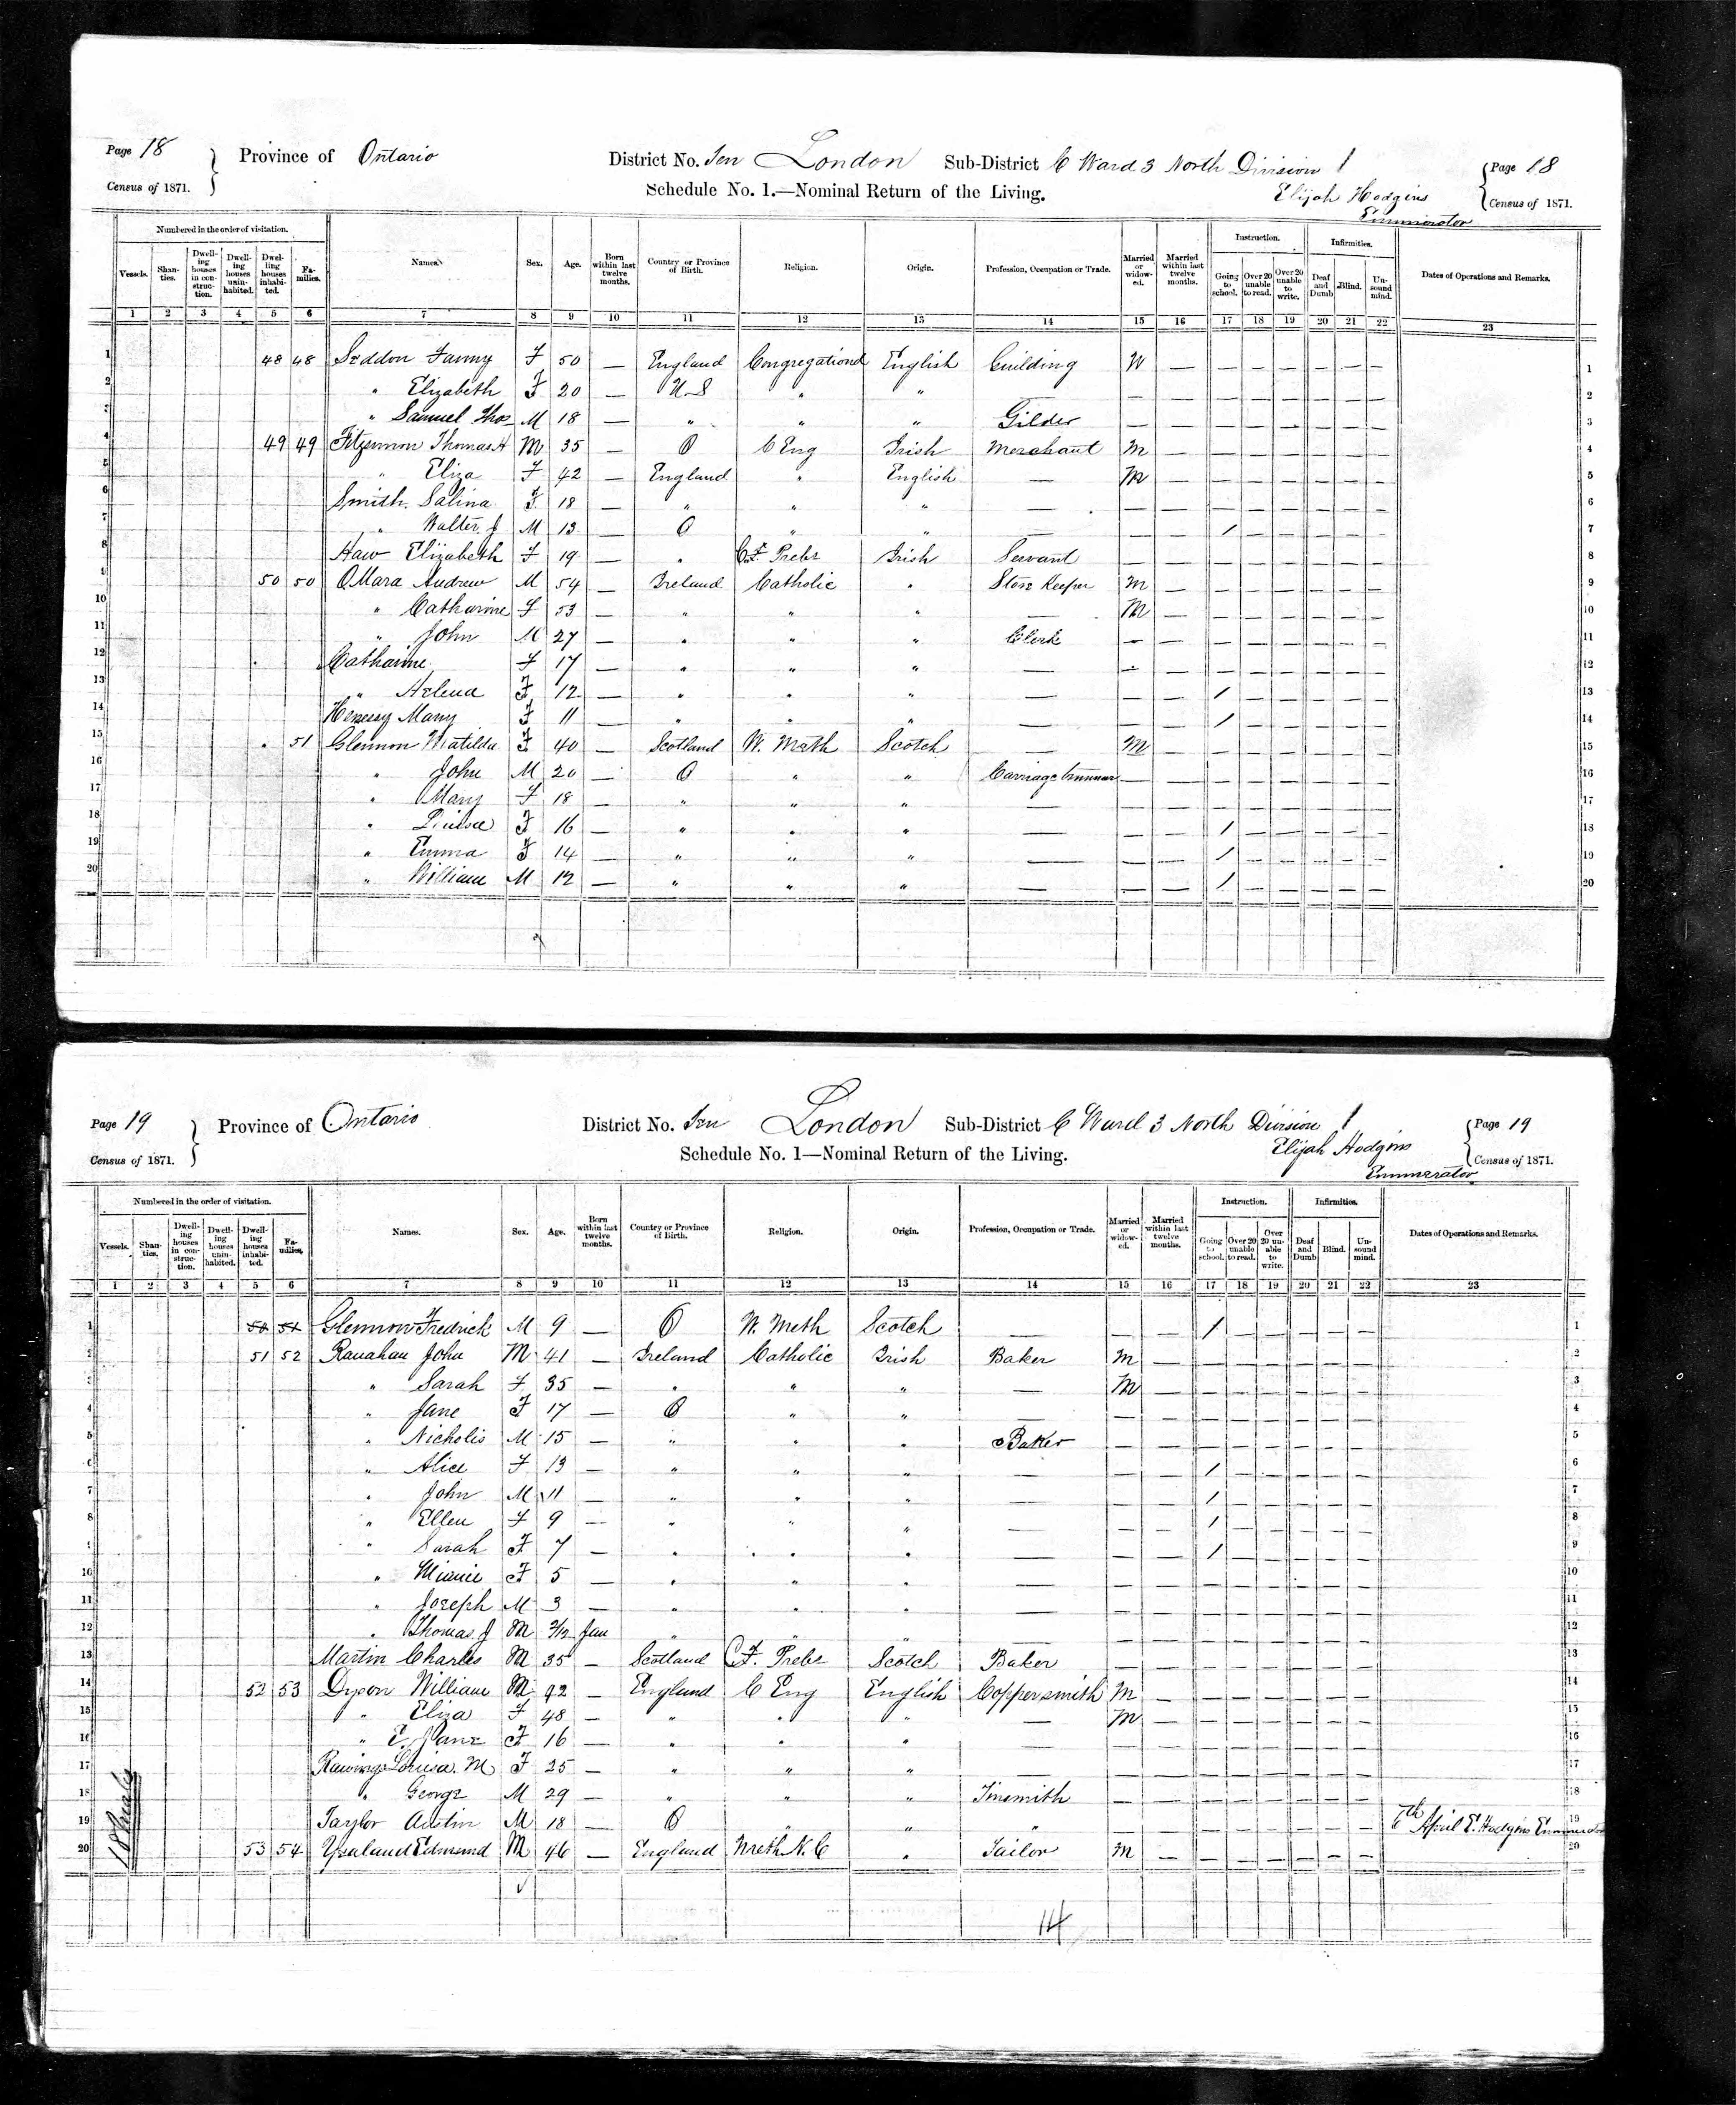 Page 18 Province of Ontario District No. Ten London Sub-District C Ward 3 North Division 1 Page 18
Census of 1871. Schedule No. 1.—Nominal Return of the Living. Elijah Hodgins Census of 1871.
Enumerator
Numbered in the order of visitation. Instruction. Infirmities.
Vessels. Shanties. Dwelling houses in construction. Dwelling houses uninhabited. Dwelling houses inhabited. Families. Names. Sex. Age. Born within last twelve months. Country or Province of Birth. Religion. Origin. Profession, Occupation or Trade. Married or widowed. Married within last twelve months. Going to school. Over 20 unable to read. Over 20 unable to write. Deaf and Dumb Blind. Unsound mind. Dates of Operations and Remarks.
1 2 3 4 5 6 7 8 9 10 11 12 13 14 15 16 17 18 19 20 21 22 23
1 48 48 Seddon Fanny F 50 — England Congregational English W — — — — — — — 1
2 " Elizabeth F 20 — U.S " " — — — — — — — — — 2
3 " Samuel Thos M 18 — " " " Gilder — — — — — — — — 3
4 49 49 Thomas H M 35 — O C Eng Irish Merchant M — — — — — — — 4
5 " Eliza F 42 — England " English — M — — — — — — — 5
6 Smith Salina F 18 — " " " — — — — — — — — — 6
7 " Walter J M 13 — O " " — — — / — — — — — 7
8 Haw Elizabeth F 19 — " C.F. Presbr Irish Servant — — — — — — — — 8
9 50 50 OMara Andrew M 54 — Ireland Catholic " Store Keeper M — — — — — — — 9
10 " Catharine F 53 — " " " — M — — — — — — — 10
11 " John M 27 — " " " Clerk — — — — — — — — 11
12 Catharine F 17 — " " " — — — — — — — — — 12
13 " Helena F 12 — " " " — — — / — — — — — 13
14 Henessy Mary F 11 — " " " — — — / — — — — — 14
15 " 51 Glennon Matilda F 40 — Scotland W. Meth Scotch — M — — — — — — — 15
16 " John M 20 — O " " Carriage trimmer — — — — — — — — 16
17 " Mary F 18 — " " " — — — — — — — — — 17
18 " Louisa F 16 — " " " — — — / — — — — — 18
19 " Emma F 14 — " " " — — — / — — — — — 19
20 " William M 12 — " " " — — — / — — — — — 20
Page 19 Province of Ontario District No. Ten London Sub-District C Ward 3 North Division 1 Page 19
Census of 1871. Schedule No. 1—Nominal Return of the Living. Elijah Hodgins Census of 1871.
Enumerator
Numbered in the order of visitation. Instruction. Infirmities.
Vessels. Shanties. Dwelling houses in construction. Dwelling houses uninhabited. Dwelling houses inhabited. Families. Names. Sex. Age. Born within last twelve months. Country or Province of Birth. Religion. Origin. Profession, Occupation or Trade. Married or widowed. Married within last twelve months. Going to school. Over 20 unable to read. Over 20 unable to write. Deaf and Dumb Blind. Unsound mind. Dates of Operations and Remarks.
1 2 3 4 5 6 7 8 9 10 11 12 13 14 15 16 17 18 19 20 21 22 23
1 50 51 Glennon Fredrick M 9 — O W. Meth Scotch — — — / — — — — — 1
2 51 52 Ranahan John M 41 — Ireland Catholic Irish Baker M — — — — — — — 2
3 " Sarah F 35 — " " " — M — — — — — — — 3
4 " Jane F 17 — O " " — — — — — — — — — 4
5 " Nicholis M 15 — " " " Baker — — — — — — — — 5
6 " Alice F 13 — " " " — — — / — — — — — 6
7 " John M 11 — " " " — — — / — — — — — 7
8 " Ellen F 9 — " " " — — — / — — — — — 8
9 " Sarah F 7 — " " " — — — / — — — — — 9
10 " Minnie F 5 — " " " — — — — — — — — — 10
11 " Joseph M 3 — " " " — — — — — — — — — 11
12 " Thomas J M 3/12 Jan " " " — — — — — — — — — 12
13 Martin Charles M 35 — Scotland C.F. Presbr Scotch Baker — — — — — — — — 13
14 52 53 Dyson William M 42 — England C Eng English Coppersmith M — — — — — — — 14
15 " Eliza F 48 — " " " — M — — — — — — — 15
16 " E. Jane F 16 — " " " — — — — — — — — — 16
17 Louisa. M F 25 — " " " — — — — — — — — — 17
18 " George M 29 — " " " Tinsmith — — — — — — — — 18
19 Taylor Austin M 18 — O " " " — — — — — — — — 6th April E. Hodgins Enumerator 19
20 53 54 Edmund M 46 — England Meth N. C " Tailor M — — — — — — — 20
14